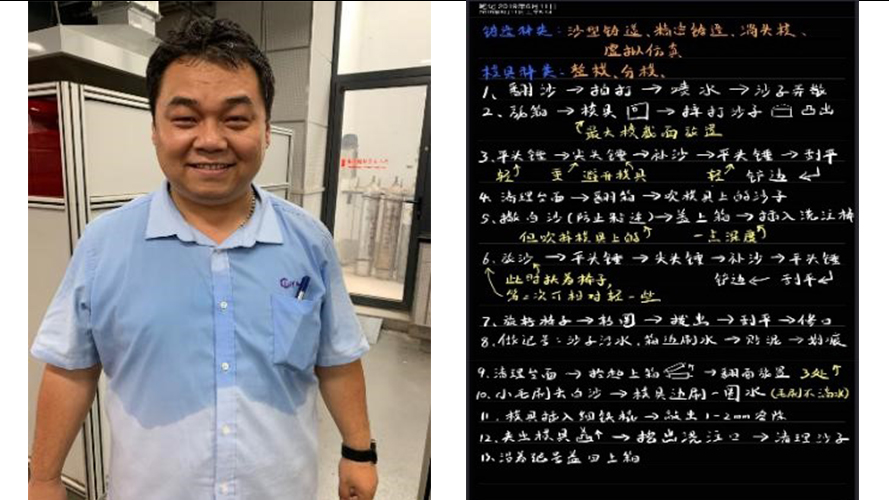 笔记 2018年6月11日
铸造种类:沙型铸造、精密铸造、消失模、
虚拟仿真
模具种类:整模、分模。
1、翻沙→拍打→喷水→沙子养散
2、砂箱→模具→捧打沙子 凸出
最大模截面放置
3.平头锤→尖头锤→补沙→平头锤→刮平
轻 重 避开模具 轻 舒边
4.清理台面→翻箱→吹模具上的沙子
5.撒白沙(防止粘连)→盖上箱→插入浇注棒
但吹掉模具上的 一点深度
6.放沙→平头锤→尖头锤→补沙→平头锤
此时扶着棒子, 舒边←刮平
第一次可相对轻一些
7.旋转棒子→松圆→拔出→刮平→修口
8.做记号:沙子污水,箱边刷水→贴泥→划痕
9.清理台面→抬起上箱→翻面放置 3处
10.小毛刷去白沙→模具边刷一圈水(毛刷不滴水)
11.模具插入细铁棍→敲出1-2mm空隙
12.夹出模具盖→挖出浇注口→清理沙子
13.沿着记号盖回上箱